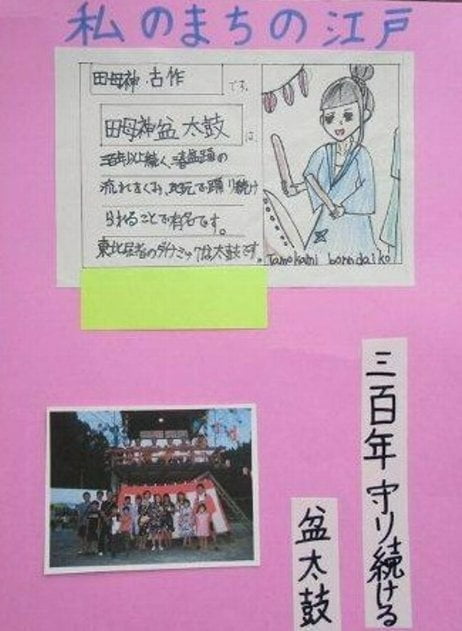 私のまちの江戸
田母神・古作
です。
田母神盆太鼓
は、
三百年以上続く、盆踊の
流れをくみ、地元で踊り続け
られることで有名です。
東北屈指のダイナミックな太鼓です。
Tamokami bonndaiko
三百年守り続ける
盆太鼓